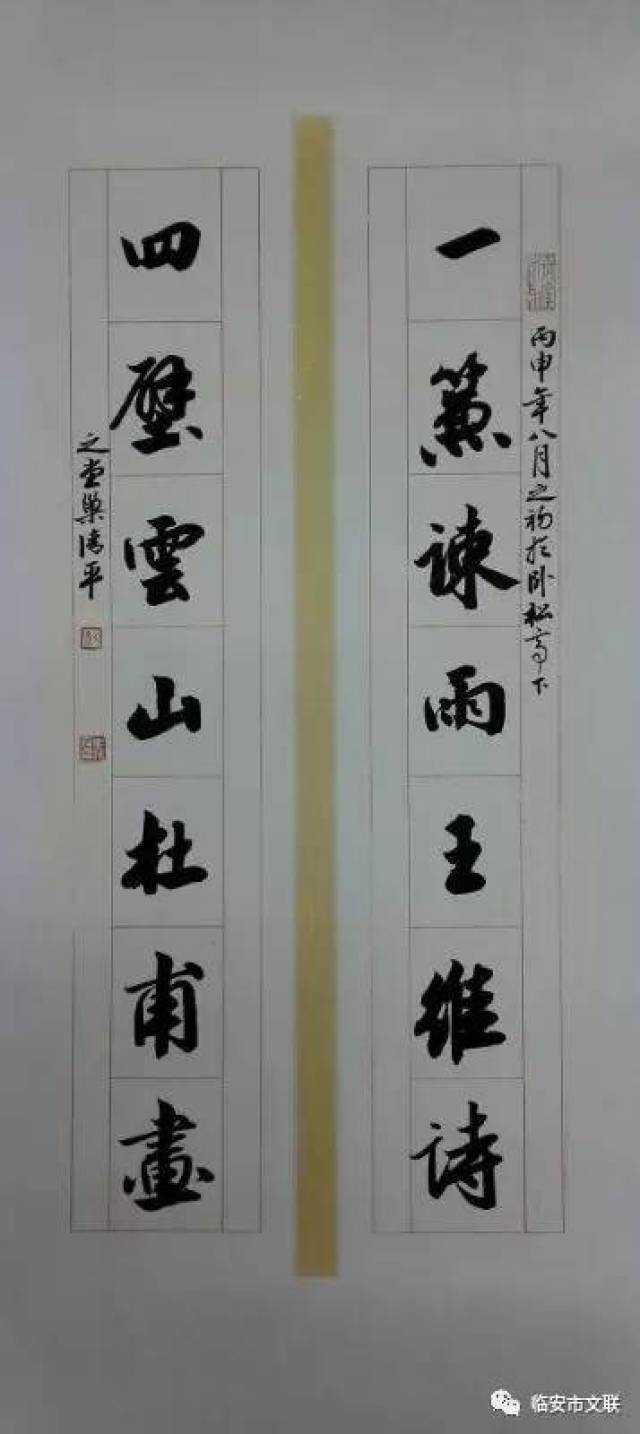 一簾諫雨王維詩
丙申年八月之初於卧松亭下
四壁雲山杜甫畫
之堂樂清平
临安市文联